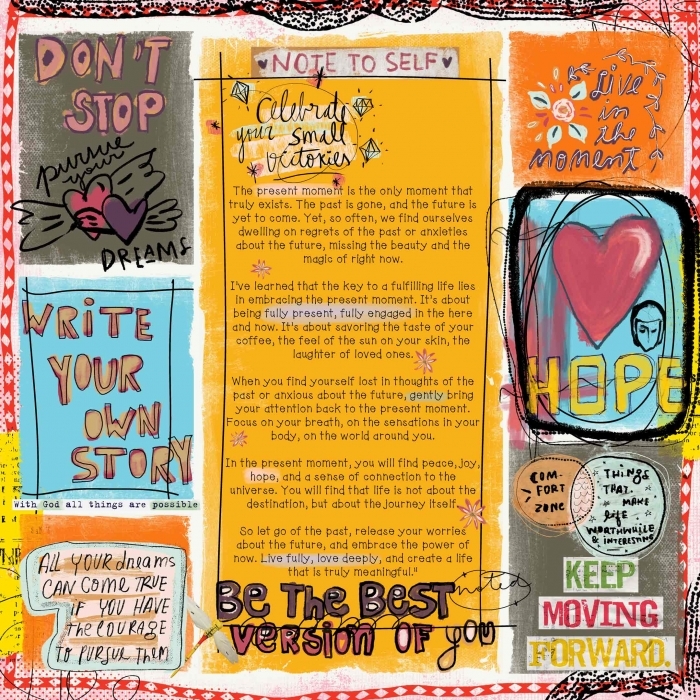 DON'T
STOP
pursue
your
DREAMS
WRITE
YOUR
OWN
STORY
With God all things are possible
ALL YOUR dreams
CAN COME TRUE
IF YOU HAVE
THE COURAGE
TO PURSUE THEM
NOTE TO SELF
Celebrate
your small
victories
The present moment is the only moment that
truly exists. The past is gone, and the future is
yet to come. Yet, so often, we find ourselves
dwelling on regrets of the past or anxieties
about the future, missing the beauty and the
magic of right now.
I've learned that the key to a fulfilling life lies
in embracing the present moment. It's about
being fully present, fully engaged in the here
and now. It's about savoring the taste of your
coffee, the feel of the sun on your skin, the
laughter of loved ones.
When you find yourself lost in thoughts of the
past or anxious about the future, gently bring
your attention back to the present moment.
Focus on your breath, on the sensations in your
body, on the world around you.
In the present moment, you will find peace, joy,
hope, and a sense of connection to the
universe. You will find that life is not about the
destination, but about the journey itself.
So let go of the past, release your worries
about the future, and embrace the power of
now. Live fully, love deeply, and create a life
that is truly meaningful."
noted
BE THE BEST
VERSION OF YOU
Live
in
the
moment
HOPE
COM-
FORT
ZONE
THINGS
THAT
MAKE
LIFE
WORTHWHILE
& INTERESTING
KEEP
MOVING
FORWARD.